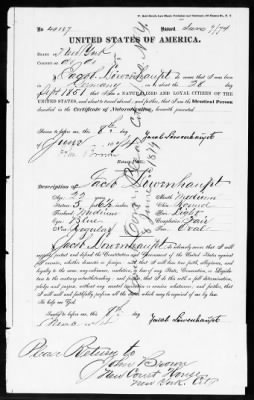 Issued June 9/74
UNITED STATES OF AMERICA.
STATE OF New York
COUNTY OF
I, Jacob Löwenhaupt do swear that I was born
in Germany on or about the 28 day
of Sept 1851 that I am a NATURALIZED AND LOYAL CITIZEN OF THE
UNITED STATES, and about to travel abroad; and further, that I am the Identical Person
described in the Certificate of Naturalization, herewith presented.
Sworn to before me, this 8th day
of June 1874
Jacob Löwenhaupt
John Brown
Notary Public
Description of Jacob Löwenhaupt
Age, 22
Mouth, Medium
Stature, 5
Chin, Round
Forehead, Medium
Hair, Light
Eyes, Blue
Complexion, Fair
Nose, Regular
Face, Oval
I, Jacob Löwenhaupt do solemnly swear that I will
support, protect and defend the Constitution and Government of the United States against
all enemies, whether domestic or foreign, and that I will bear true faith, allegiance, and
loyalty to the same, any ordinance, resolution, or law of any State, Convention, or Legisla-
ture to the contrary notwithstanding; and further, that I do this with a full determination,
pledge and purpose, without any mental reservation or evasion whatsoever; and further, that
I will well and faithfully perform all the duties which may be required of me by law.
So help me God.
Sworn to before me, this 8th day
of June
Jacob Löwenhaupt
Please Return to
John Brown
New Court House
New York City